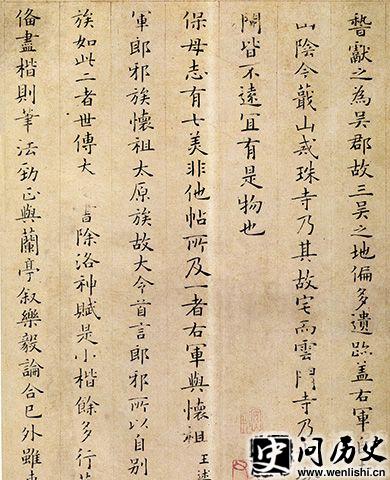 獻之為吳郡故三吳之地偏多遺跡盖右軍
山陰今蕺山戒珠寺乃其故宅而雲門寺乃
間皆不遠宜有是物也
保母志有七美非他帖所及一者右軍與懷祖王述
軍耶邪族懷祖太原族故大令首言耶邪所以自別
族如此二者世傳大除洛神賦是小楷餘多行
俻盡楷則筆法勁正與蘭亭叙樂毅論合已外雖
问历史
www.wenlishi.com